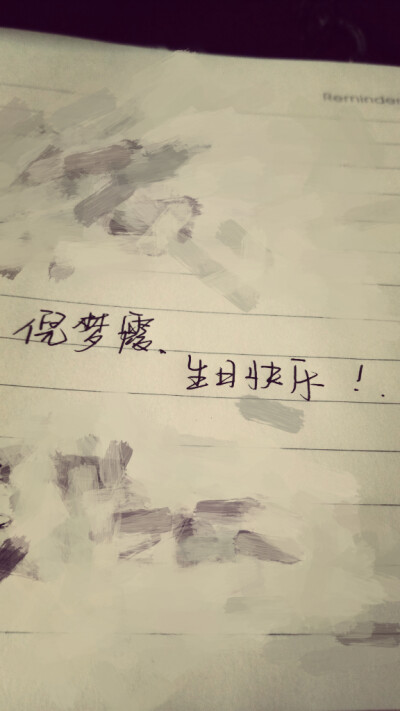 Reminder
倪梦霞.
生日快乐！.